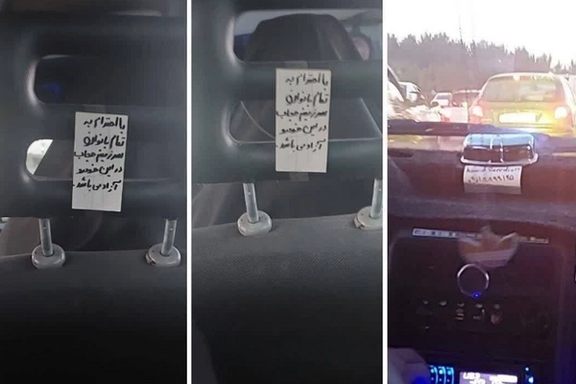 با احترام به
تمام بانوان
سرزمینم حجاب
در این خودرو
آزاد می باشد.
با احترام به
تمام بانوان
سرزمینم حجاب
در این خودرو
آزاد می باشد.